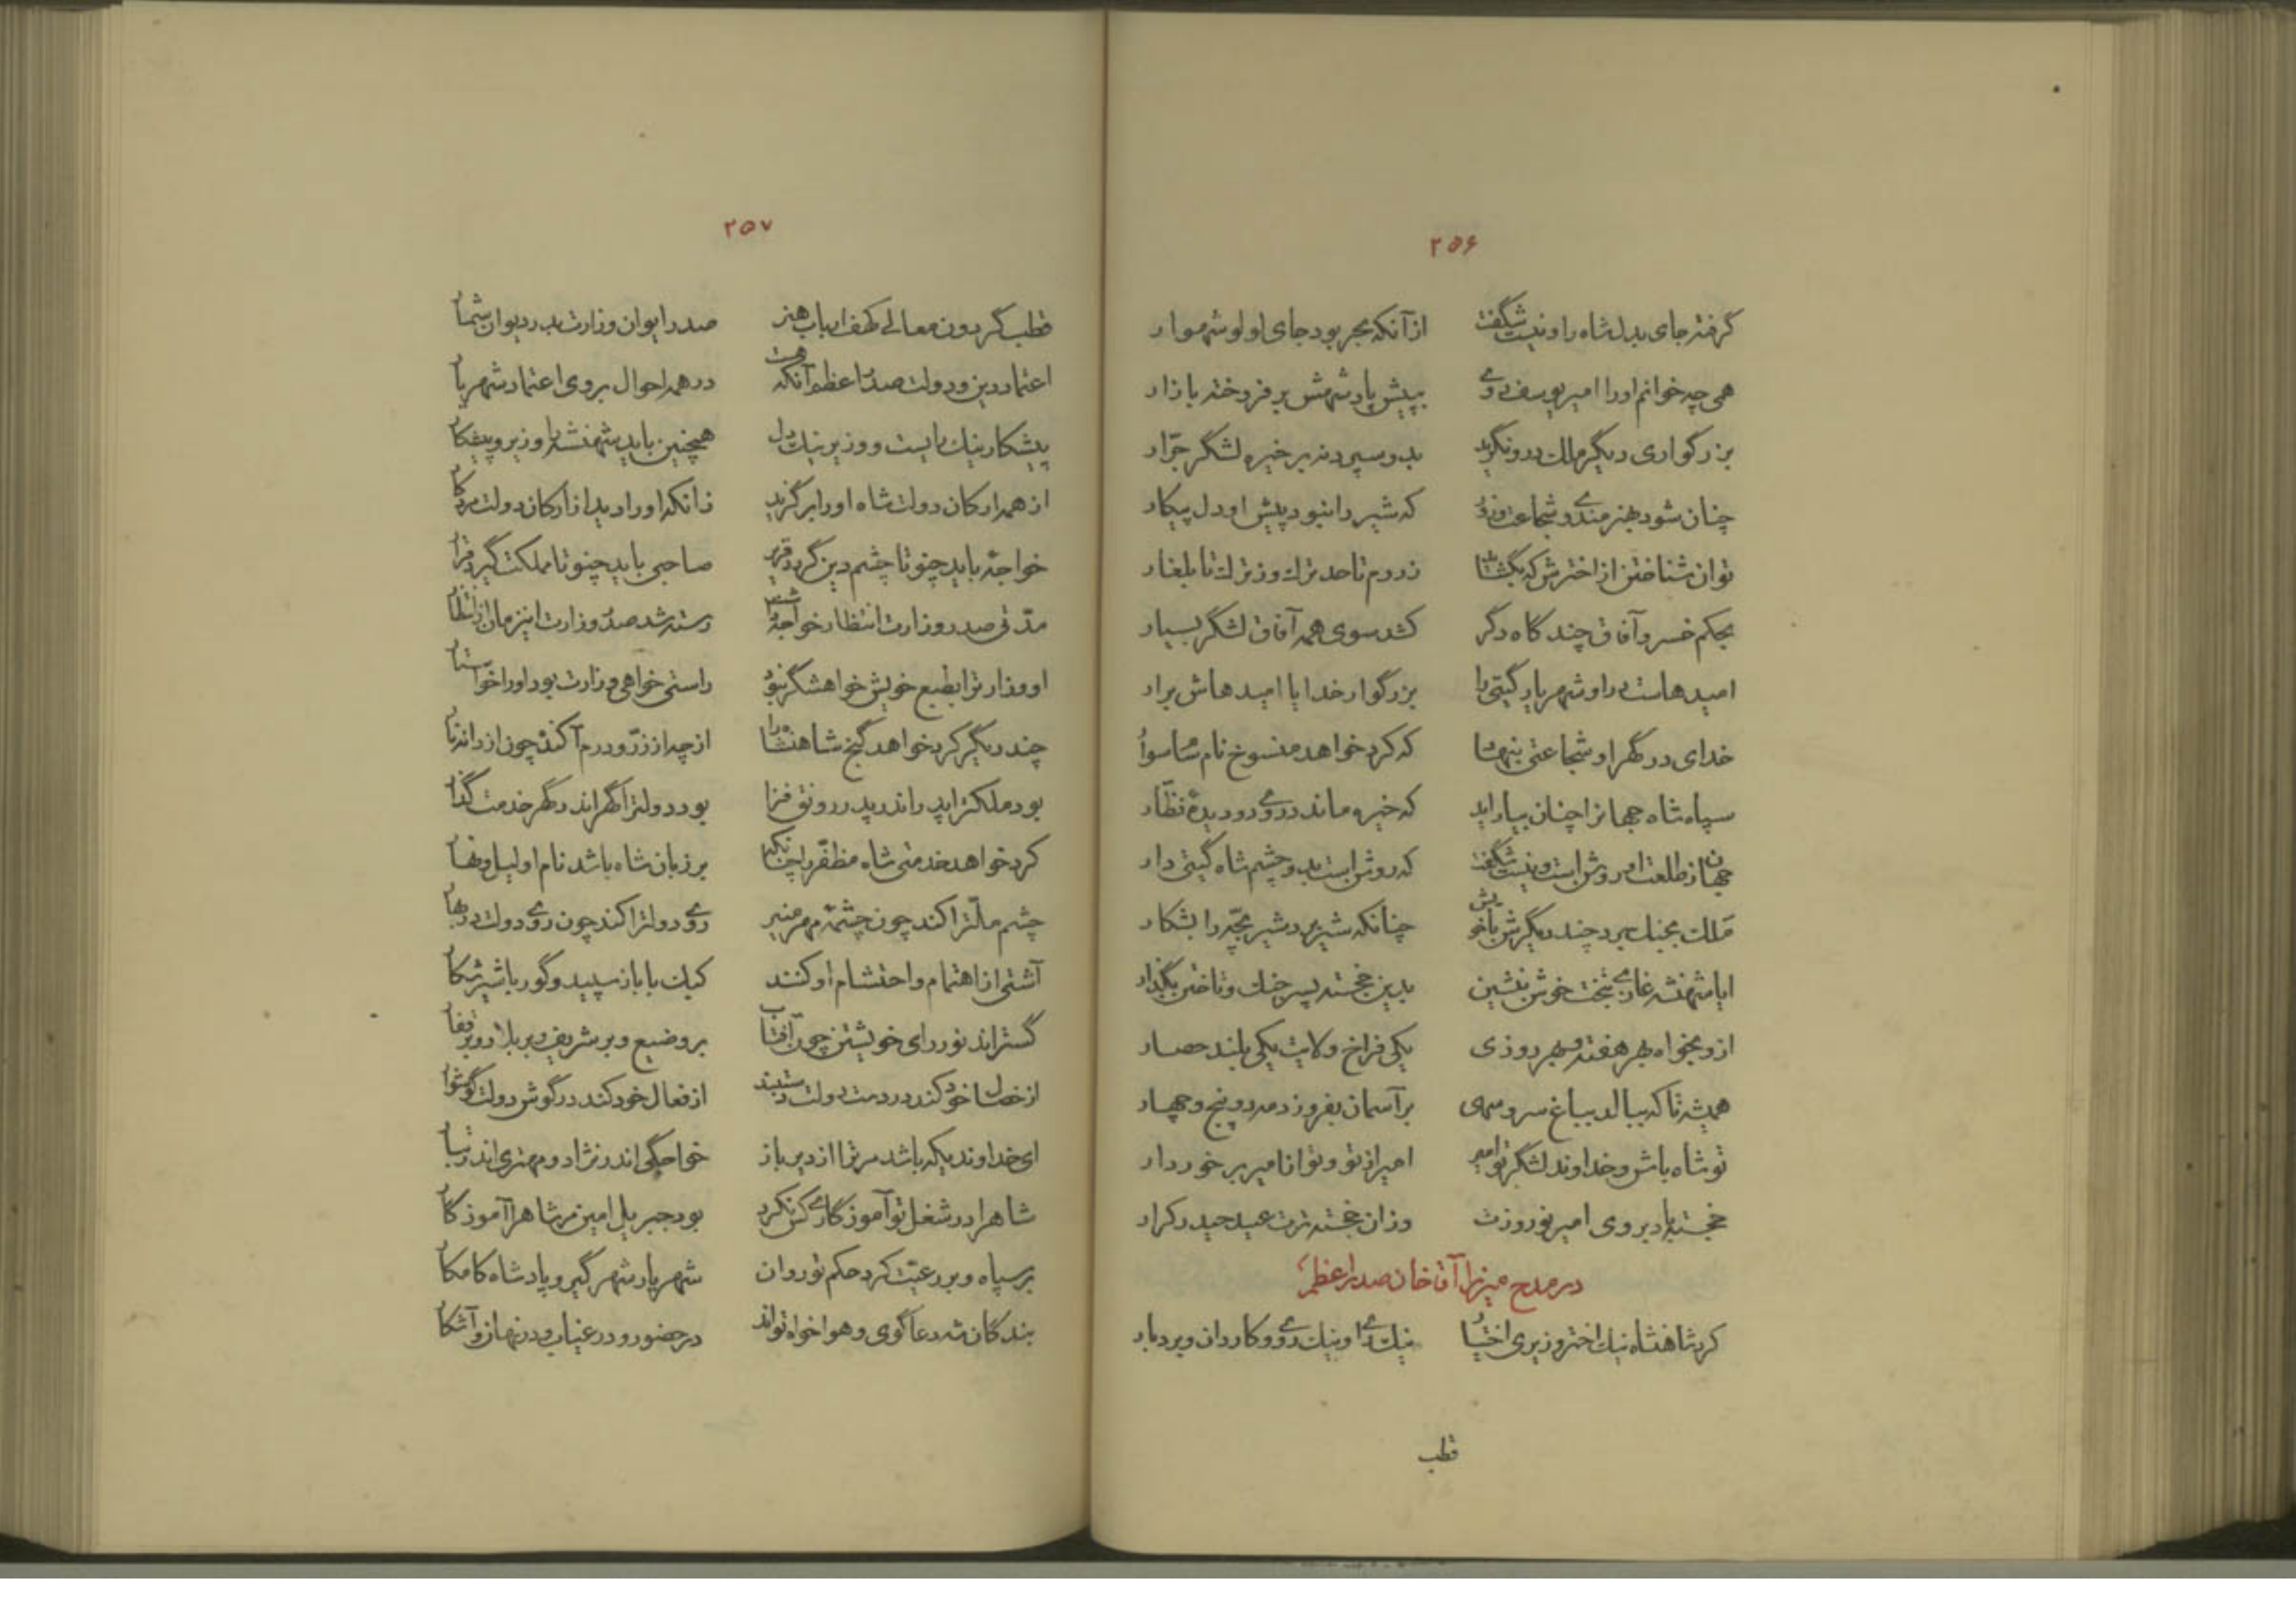 ۲۵۶
گرفته جای بدل شاه را و نیست شگفت از آنکه بحر بود جای لولو شهوار
همی چه خوانم او را امیر یوسف روی بپیش پادشهش بر فروخته بازار
بزرگواری دیگر ملک درو نگرید بدو سپرد نه بر خیره لشگر جرّار
چنان شود بهنرمندی و شجاعت و زور که شیر را نبود پیش او دل پیکار
توان شناختن از اخترش که بگشاید ز روم تا حد ترک و ز ترک تا بلغار
بحکم خسرو آفاق چند گاه دگر کشد سوی همه آفاق لشگر بسیار
امیدهاست در او شهریار گیتی را بزرگوار خدایا امیدهاش برار
خدای در گهر او شجاعتی بنهاد که کرد خواهد منسوخ نام سام سوار
سپاه شاه جهانرا چنان بیاراید که خیره ماند در وی دو دیدهٔ نظّار
جهان ز طلعت او روشن است و نیست شگفت که روشن است بدو چشم شاه گیتی دار
ملک بجنگ برد چند دیگرش با خویش چنانکه شیر برد شیر بچّه را بشکار
ایا شهنشه غازی بتخت خوش بنشین بدین خجسته پسر جنگ و تاختن بگذار
ازو بخواه بهر هفته و بهر روزی یکی فراخ ولایت یکی بلند حصار
همیشه تا که ببالد بباغ سرو سهی بر آسمان بفروزد مه دو پنج و چهار
تو شاه باش و خداوند لشگر تو امیر امیر از تو و تو از امیر برخوردار
خجسته باد بروی امیر نوروزت وزان خجسته ترت عید حیدر کرار
در مدح میرزا آقا خان صدر اعظم
کرد شاهنشاه نیک اختر وزیری اختیار نیک رای و نیک روی و کاردان و بردبار
قطب
۲۵۷
قطب گردون معالی کهف ارباب هنر صدر ایوان وزارت بدر دیوان شمار
اعتماد دین و دولت صدر اعظم آنکه هست در همه احوال بر وی اعتماد شهریار
پیشکار نیک بایست و وزیر نیک دل همچنین باید شهنشه را وزیر و پیشکار
از همه ارکان دولت شاه او را برگزید زانکه او را دید از ارکان دولت مرد کار
خواجهٔ باید چنو تا چشم دین گردد قریر صاحبی باید چنو تا مملکت گیرد قرار
مدّتی صدر وزارت انتظار خواجه داشت رسته شد صدر وزارت این زمان از انتظار
او وزارترا بطبع خویش خواهشگر نبود راستی خواهی وزارت بود او را خواستار
چند دیگر کرد خواهد گنج شاهنشاه را از چه از زرّ و درم آکنده چون از دانه نار
بود ملکت را پدر اندر پدر رونق فزا بود دولترا گهر اندر گهر خدمت گذار
کرد خواهد خدمتی شاه مظفّر را چنانکه بر زبان شاه باشد نام او لیل و نهار
چشم ملّترا کند چون چشمهٔ مهر منیر روی دولترا کند چون روی دولت در بهار
آشتی از اهتمام و احتشام او کنند کبک با باز سپید و گور با شیر شکار
گستراند نور رای خویشتن چون آفتاب بر وضیع و بر شریف و بر بلاد و بر قفار
از خصال خود کند در دست دولت دستبند از فعال خود کند در گوش دولت گوشوار
ای خداوندیکه باشد مر ترا از دیر باز خواجگی اندر نژاد و مهتری اندر تبار
شاه را در شغل تو آموزگاری کس نکرد بود جبریل امین مر شاه را آموزگار
بر سپاه و بر رعیّت کرد حکم تو روان شهریار شهر گیر و پادشاه کامکار
بندگان شه دعاگوی و هوا خواه تواند در حضور و در غیاب و در نهان و آشکار